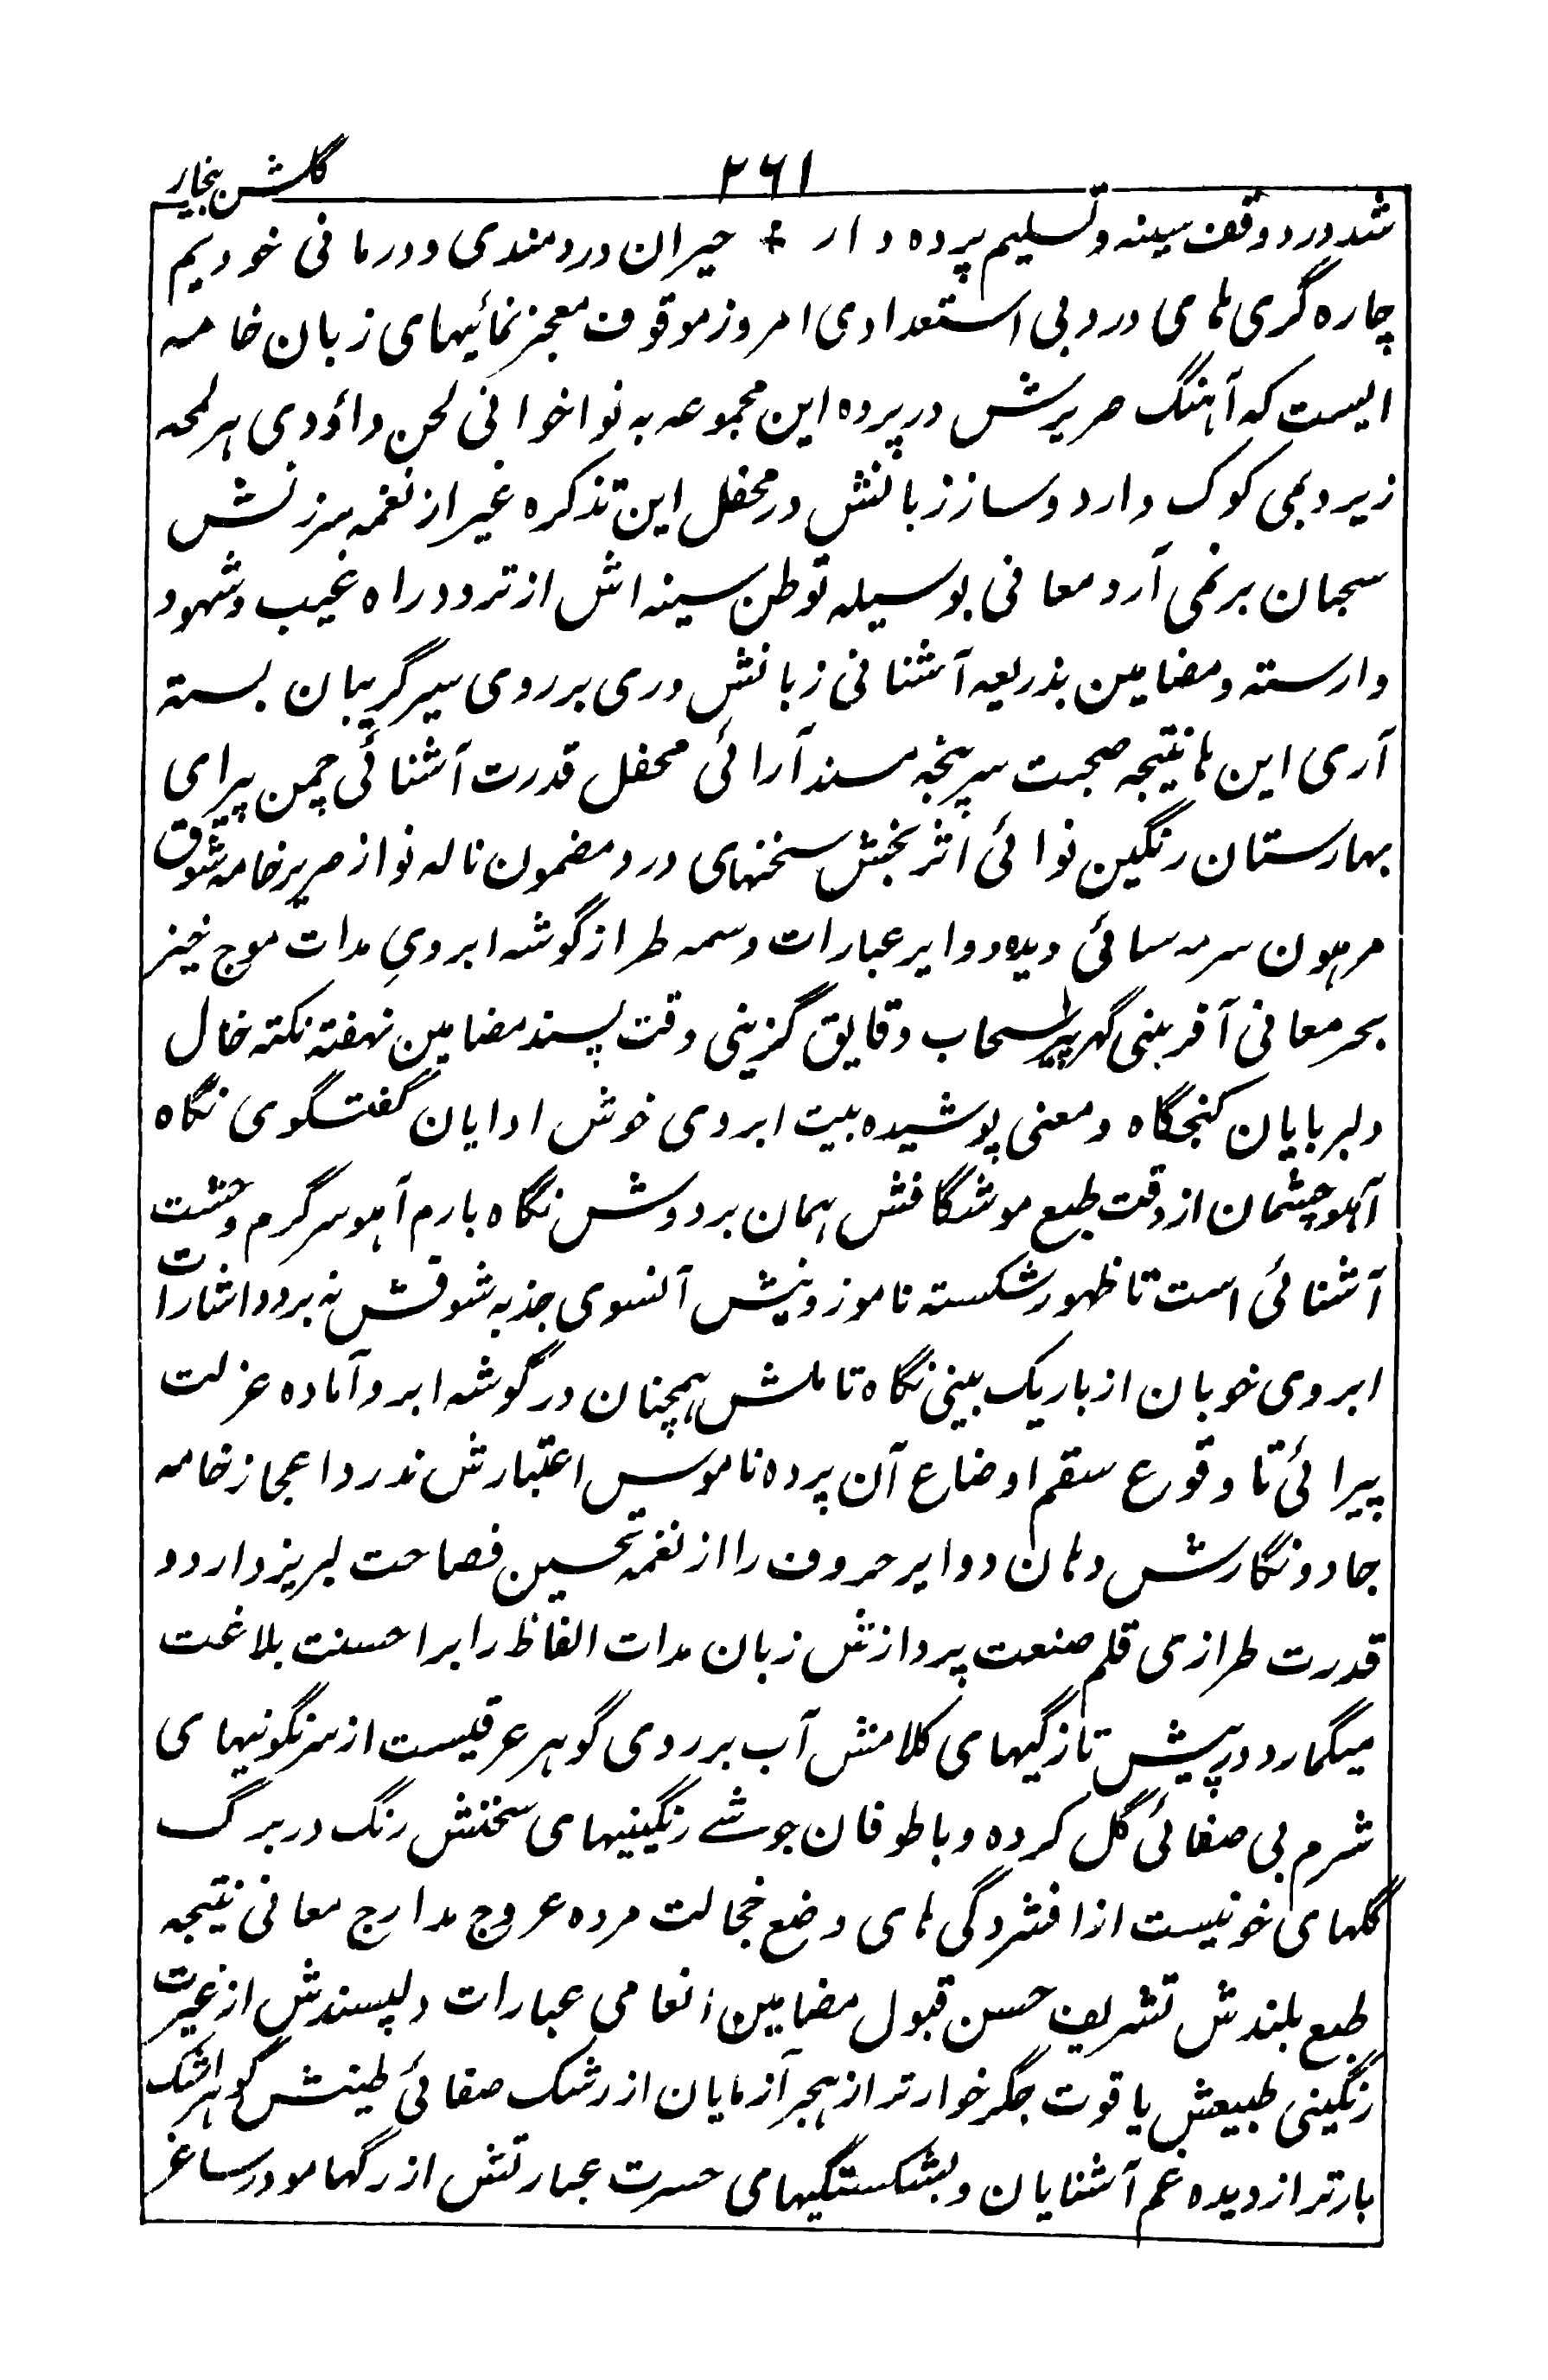 ۲۶۱
گلشن بیخار
شد درد وقف سینه و تسلیم پرده دار + حیران دردمندی و درمانی خودیم
چاره گری های درد بی استعدادی امروز موقوف معجز نمائیهای زبان خامه
ایست که آهنگ صریرش در پرده این مجموعه به نواخوانی لحن داؤدی هر لمحه
زیر و بمی کوک دارد و ساز زبانش در محفل این تذکره غیر از نغمه سرزنش
سحبان بر نمی آرد معانی بوسیله توطن سینه اش از تردد راه غیب و شهود
وارسته و مضامین بذریعه آشنائی زبانش دری بر روی سیر گریبان بسته
آری این ها نتیجه صحبت سرپنجه مسند آرائی محفل قدرت آشنائی چمن پیرای
بهارستان رنگین نوائی اثر بخش سخنهای درد مضمون ناله نواز صریر خامه شوق
مرهون سرمه سائی دیده دوایر عبارات وسمه طراز گوشه ابروی مدات موج خیز
بحر معانی آفرینی گهر سحاب دقایق گزینی دقت پسند مضامین نهفته نکته خال
دلربایان کنجگاه و معنی پوشیده بیت ابروی خوش ادایان گفتگوی نگاه
آهو چشمان از دقت طبع موشگافش همان بر دوش نگاه بارم آهو سرگرم وحشت
آشنائی است تا ظهور شکسته ناموزونیش آنسوی جذبه شوقش نه برد و اشارات
ابروی خوبان از باریک بینی نگاه تاملش همچنان در گوشه ابرو آماده عزلت
پیرائی تا وقوع سقم اوضاع آن پرده ناموس اعتبارش ندرد اعجاز خامه
جادو نگارش دهان دوایر حروف را از نغمه تحسین فصاحت لبریز دارد و
قدرت طرازی قلم صنعت پردازش زبان مدات الفاظ را بر احسنت بلاغت
میگمارد و در پیش تازگیهای کلامش آب بر روی گوهر عرقیست از سرنگونیهای
شرم بی صفائی گل کرده و با طوفان جوشے رنگینیهای سخنش رنگ در برگ
گلهای خونیست از افشردگی های وضع خجالت مرده عروج مدارج معانی نتیجه
طبع بلندش تشریف حسن قبول مضامین انعامی عبارات دلپسندش از غیرت
رنگینی طبیعش یاقوت جگر خوارتر از هجر آزمایان از رشک صفائی طینتش گوهر اشک
بارتر از دیده غم آشنایان و بشکستگیهای حسرت عبارتش از رگها مو در ساغر